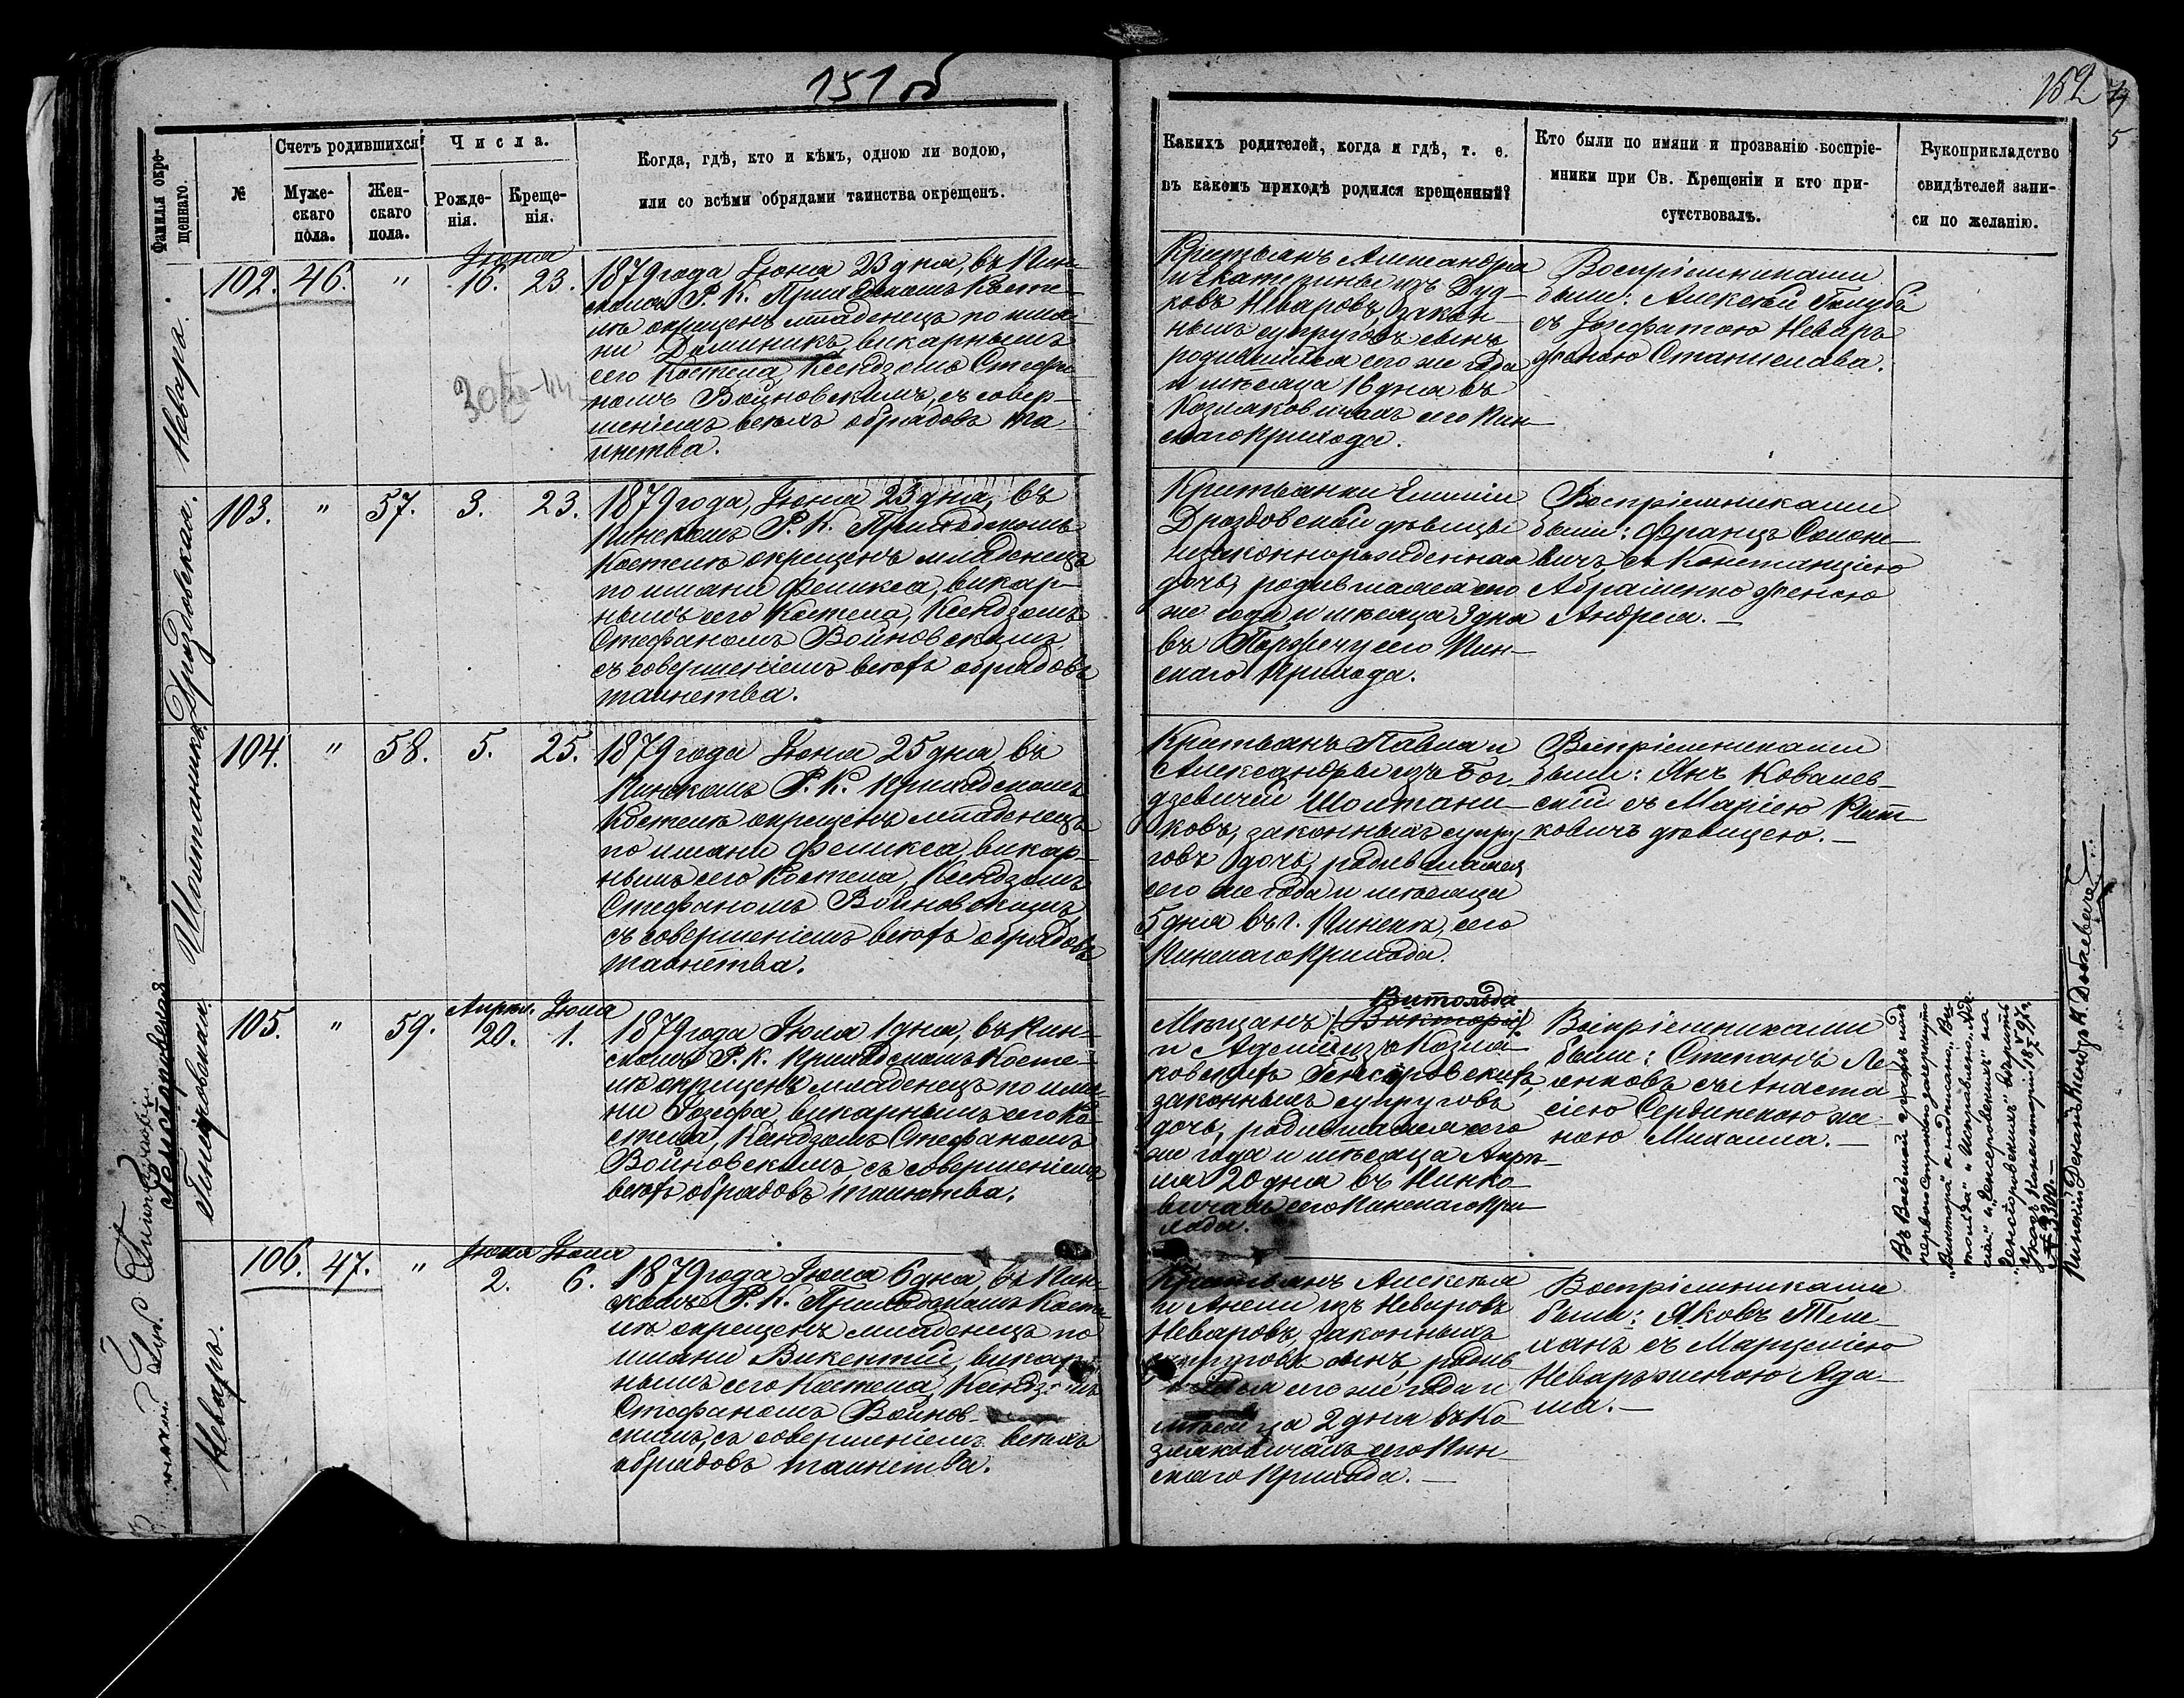 151 об
152
Фамилія окре-
щеннаго.
№
Счетъ родившихся
Муже-
скаго
пола.
Жен-
скаго
пола.
Числа.
Рожде-
нія.
Креще-
нія.
Когда, гдѣ, кто и кѣмъ, одною ли водою,
или со всѣми обрядами таинства окрещенъ.
Каких​ъ родителей, когда и гдѣ, т. е.
въ какомъ приходѣ родился крещенный?
Кто были по имяни и прозванію воспріе-
мники при Св. Крещеніи и кто при-
сутствовалъ.
Рукоприкладство
свидѣтелей запи-
си по желанію.
Неваръ.
102. 46. " Іюня 16. 23.
1879 года Іюня 23 дня, въ Пин-
скомъ Р. К. Приходскомъ Косте-
лѣ окрещенъ младенецъ по имя-
ни Доминикъ, викарнымъ
сего Костела, Ксендзомъ Стефа-
номъ Войновскимъ, съ совер-
шеніемъ всѣхъ обрядовъ та-
инства.
Крестьянъ Александра
и Екатерины изъ Дуд-
ковъ Неваровъ, закон-
ныхъ супруговъ сынъ
родившійся сего же года
и мѣсяца 16 дня въ
Козляковичахъ сего Пин-
скаго Прихода.
Воспріемниками
были: Алексѣй Голубъ
съ Іозефатою Неваръ
женою Станислава.
Дроздовская.
103. " 57. 3. 23.
1879 года, Іюня 23 дня, въ
Пинскомъ Р. К. Приходскомъ
Костелѣ окрещенъ младенецъ
по имяни Феликса, викар-
нымъ сего Костела, Ксендзомъ
Стефаномъ Войновскимъ,
съ совершеніемъ всѣхъ обрядовъ
таинства.
Крестьянки Емиліи
Дроздовской дѣвицы
незаконнорожденная
дочь, родившаяся сего
же года и мѣсяца 3 дня
въ сего Пин-
скаго Прихода.
Воспріемниками
были: Францъ Соломе-
вичъ съ Констанціею
Абраменко женою
Андрея. —
Шолтаникъ.
104. " 58. 5. 25.
1879 года Іюня 25 дня, въ
Пинскомъ Р. К. Приходскомъ
Костелѣ окрещенъ младенецъ
по имяни Феликса, викар-
нымъ сего Костела, Ксендзомъ
Стефаномъ Войновскимъ,
съ совершеніемъ всѣхъ обрядовъ
таинства.
Крестьянъ Павла и
Александры изъ Бог-
дзевичей Шолтани-
ковъ, законныхъ супру-
говъ дочь, родившаяся
сего же года и мѣсяца
5 дня въ г. Пинскѣ, сего
Пинскаго Прихода.
Воспріемниками
были: Янъ Ковалев-
скій съ Маріею
ковичъ дѣвицею. —
Генсіоровская
105. " 59. Апрѣл. 20. Іюля 1.
1879 года Іюля 1 дня, въ Пин-
скомъ Р. К. Приходскомъ Косте-
лѣ окрещенъ младенецъ по имя-
ни Іозефа, викарнымъ сего Ко-
стела, Ксендзомъ Стефаномъ
Войновскимъ, съ совершеніемъ
всѣхъ обрядовъ таинства.
Витольда
Мѣщанъ
и Аделіи изъ Козля-
ковскихъ Генсіоровскихъ,
законныхъ супруговъ
дочь, родившаяся сего
же года и мѣсяца Апрѣ-
ля 20 дня въ Нинко-
вичахъ сего Пинскаго При-
хода.
Воспріемниками
были: Степанъ Ле-
съ Анаста-
сіею же-
ною Михаила. —
Указъ Консисторіи 1897 г.
№ 3300. —
Пинскій Деканъ Ксендзъ К.
Неваръ.
106. 47. " Іюля 2. Іюля 6.
1879 года Іюля 6 дня, въ Пин-
скомъ Р. К. Приходскомъ Косте-
лѣ окрещенъ младенецъ по
имяни Викентій, викар-
нымъ сего Костела, Ксендзомъ
Стефаномъ Войнов-
скимъ, съ совершеніемъ всѣхъ
обрядовъ таинства.
Крестьянъ Алексѣя
и Анели изъ Неваровъ
Неваровъ, законныхъ
супруговъ сынъ, родив-
шійся сего же года и
мѣсяца 2 дня въ Ко-
зляковичахъ сего Пин-
скаго Прихода. —
Воспріемниками
были: Яковъ Теле-
ханъ съ Марцеліею
Неваръ женою Ада-
ма. —